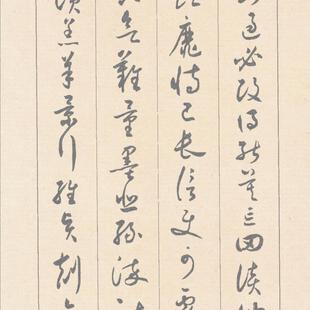 過必改得能莫忘罔談
靡恃己長信使可覆
難量墨悲絲染
讚羔羊景行維賢剋